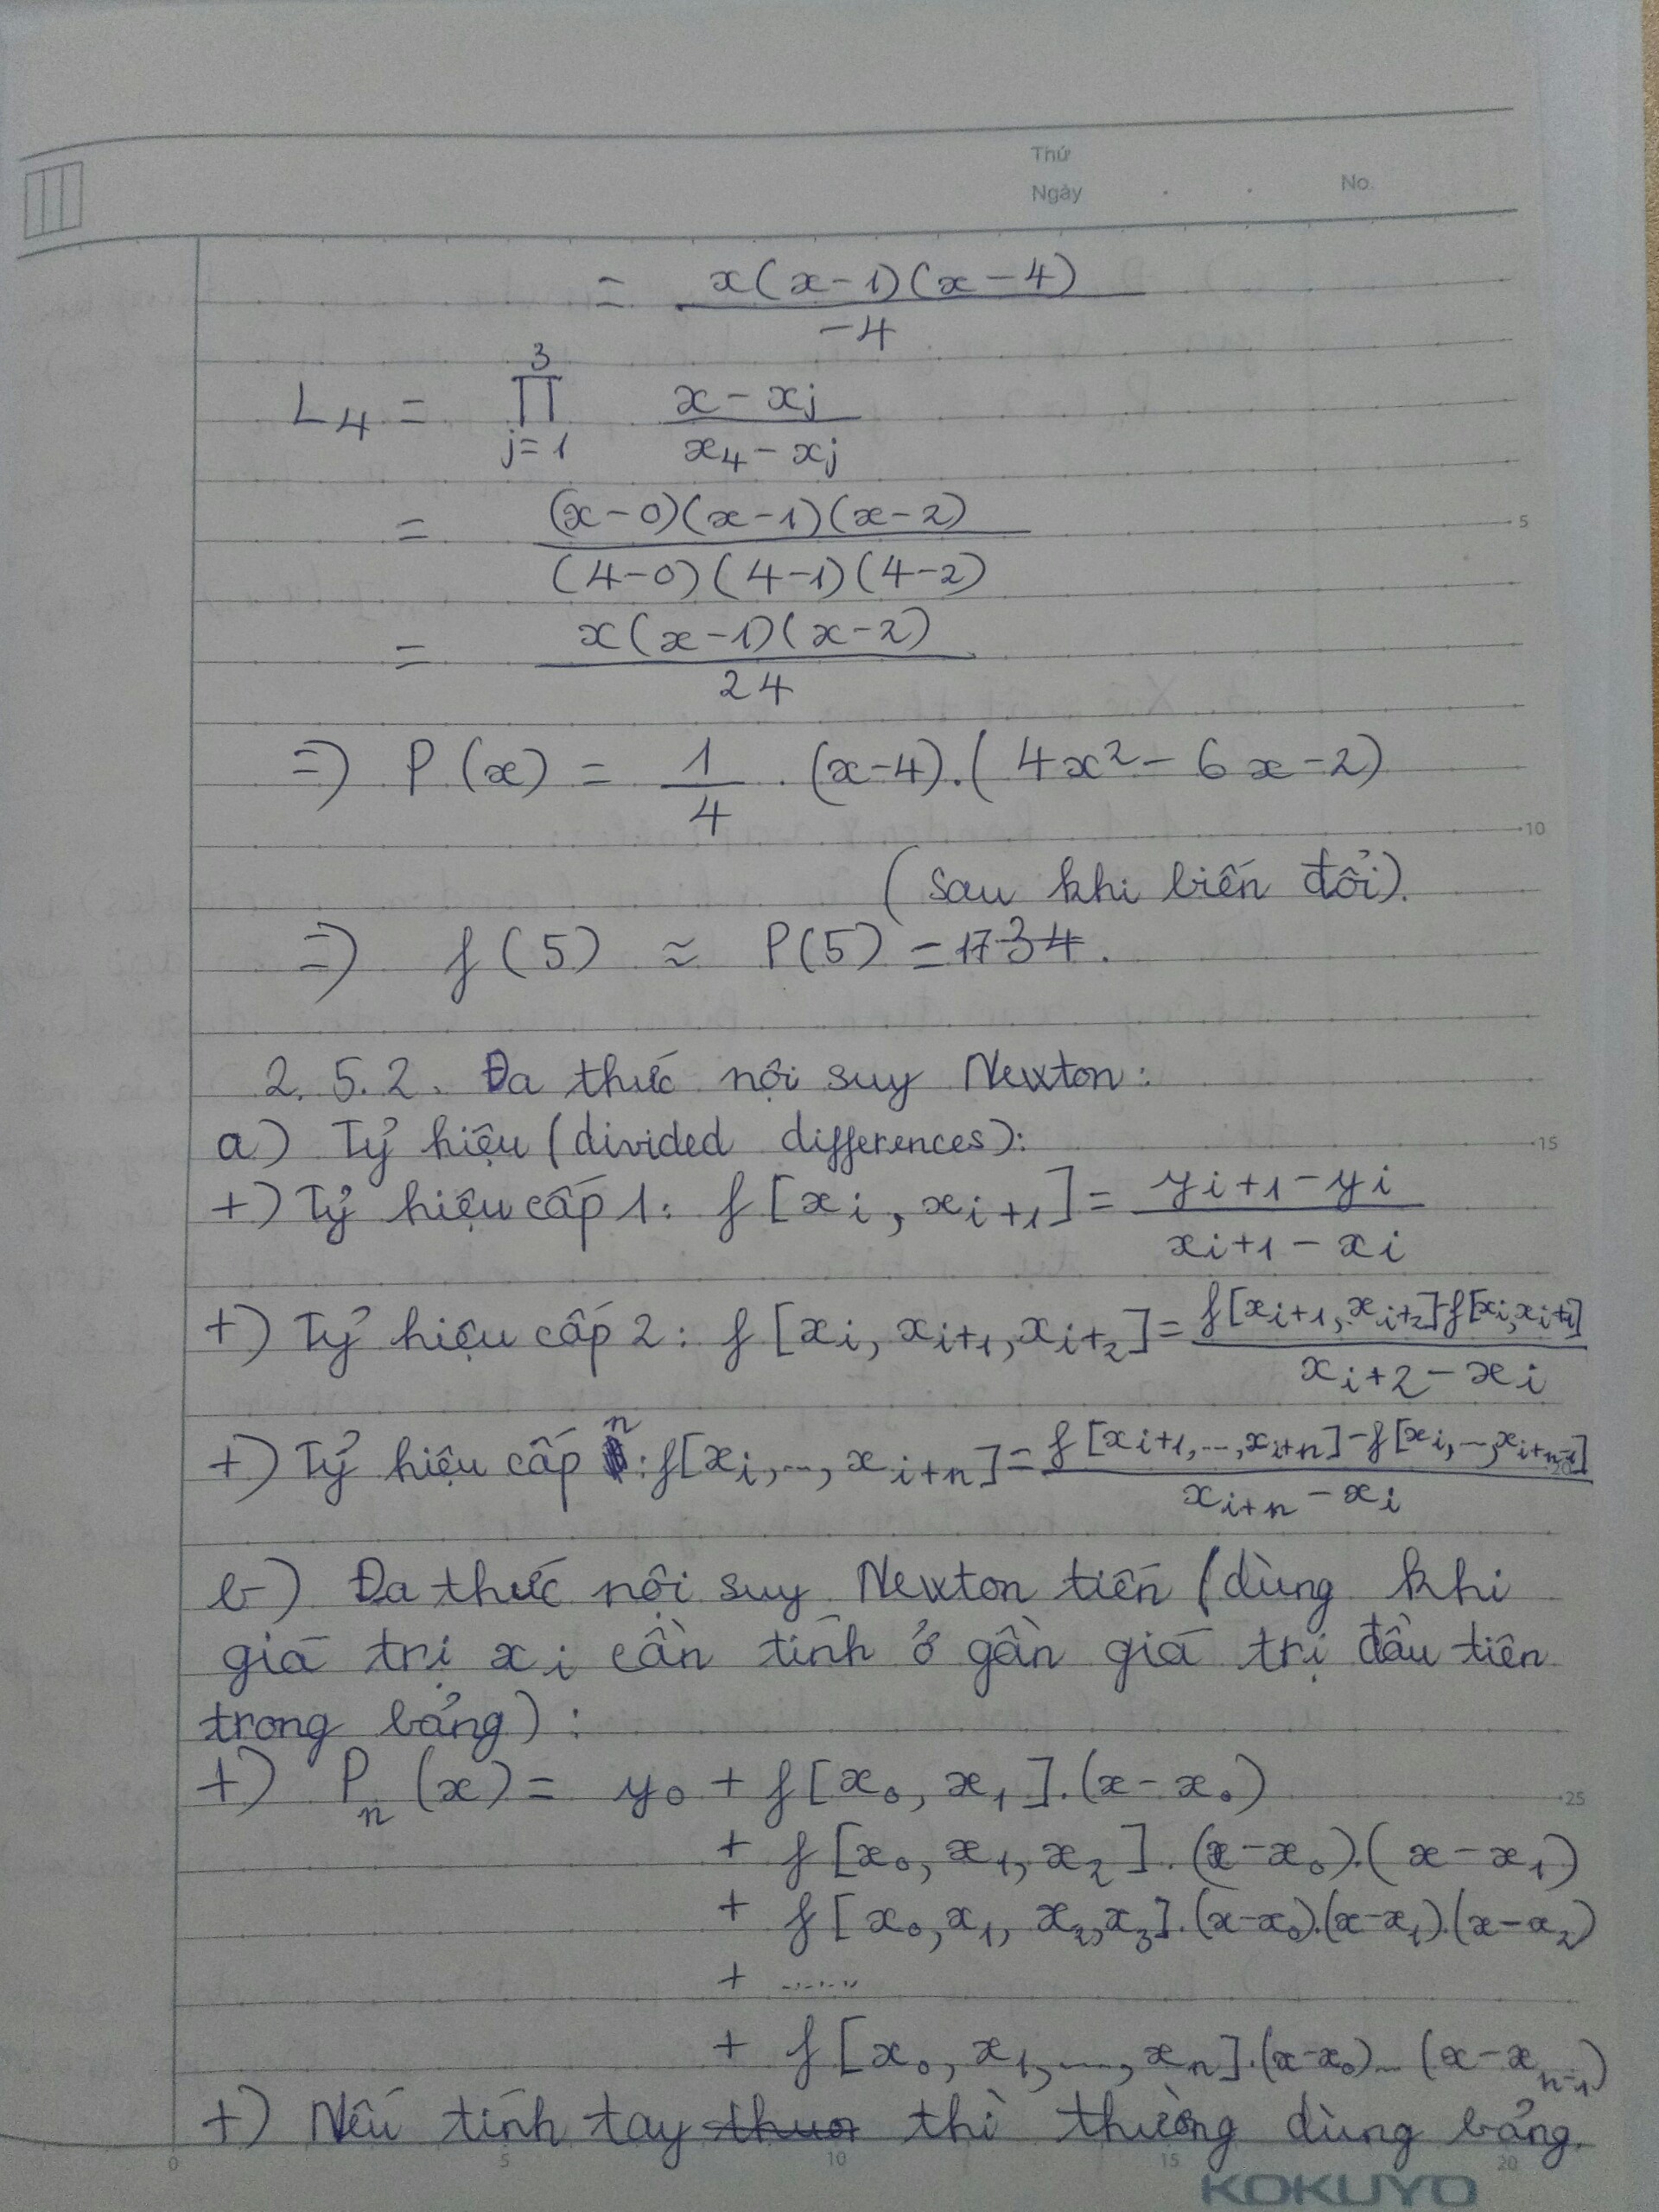 Thứ
Ngày . . No.
= x(x-1)(x-4) / -4
L₄ = ∏_{j=1}^{3} (x - xj) / (x₄ - xj)
= (x-0)(x-1)(x-2) / (4-0)(4-1)(4-2)
= x(x-1)(x-2) / 24
5
=> P(x) = 1/4 . (x-4).(4x² - 6x - 2)
10
(sau khi biến đổi).
=> f(5) ≈ P(5) =
2.5.2. Đa thức nội suy Newton:
a) Tỷ hiệu (divided differences):
15
+) Tỷ hiệu cấp 1: f[xᵢ, xᵢ₊₁] = (yᵢ₊₁ - yᵢ) / (xᵢ₊₁ - xᵢ)
+) Tỷ hiệu cấp 2: f[xᵢ, xᵢ₊₁, xᵢ₊₂] = (f[xᵢ₊₁, xᵢ₊₂] - f[xᵢ, xᵢ₊₁]) / (xᵢ₊₂ - xᵢ)
+) Tỷ hiệu cấp n: f[xᵢ, ..., xᵢ₊ₙ] = (f[xᵢ₊₁, ..., xᵢ₊ₙ] - f[xᵢ, ..., xᵢ₊ₙ₋₁]) / (xᵢ₊ₙ - xᵢ)
20
b) Đa thức nội suy Newton tiến (dùng khi
giá trị xᵢ cần tính ở gần giá trị đầu tiên
trong bảng):
+) Pₙ(x) = y₀ + f[x₀, x₁].(x - x₀)
25
+ f[x₀, x₁, x₂].(x - x₀).(x - x₁)
+ f[x₀, x₁, x₂, x₃].(x - x₀).(x - x₁).(x - x₂)
+ ......
+ f[x₀, x₁, ..., xₙ].(x - x₀)...(x - xₙ₋₁)
+) Nếu tính tay thì thường dùng bảng.
0 5 10 15 20
KOKUYO